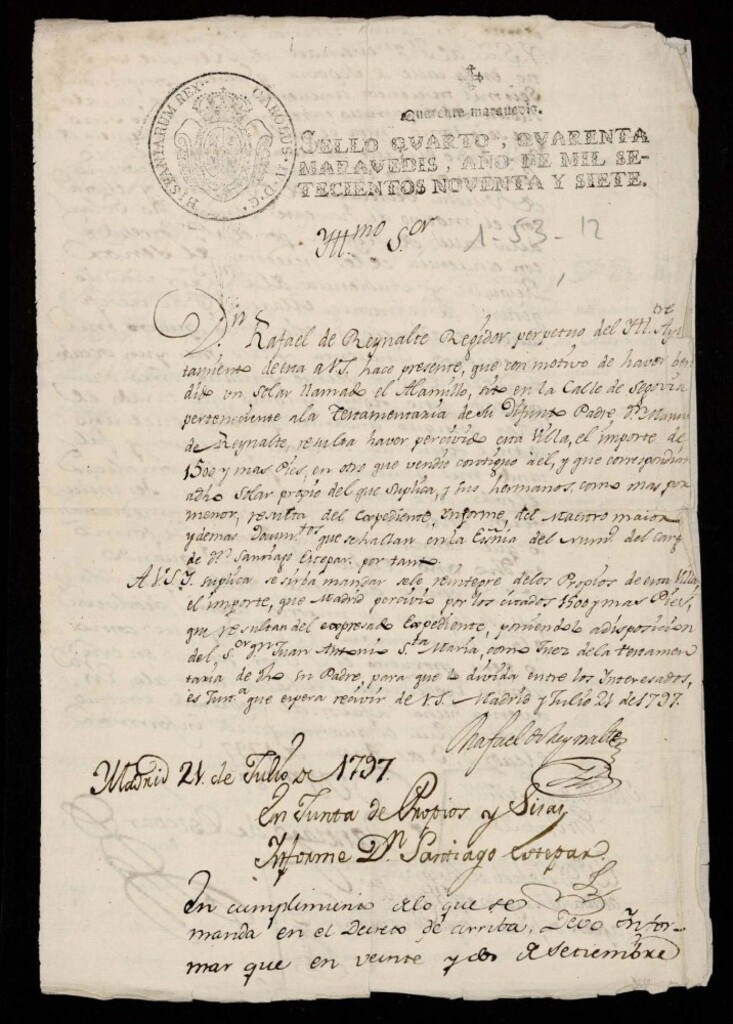 HISPANIARUM REX. CAROLUS. IV. D. G.
Quarenta maravedis.
SELLO QVARTO, QVARENTA
MARAVEDIS, AÑO DE MIL SE-
TECIENTOS NOVENTA Y SIETE.
Yll.mo S.or
1-53-12
D.n Rafael de Reynalte Regidor perpetuo del Yll.tre Ayn
tamiento de esta a V.S. hace presente, que con motivo de haver ben
dido un Solar llamado el Alamillo, sito en la Calle de Segovia
perteneciente a la Testamentaria de su Difunto Padre D.n Manu
de Reynalte, resulta haver percivido esta Villa, el importe de
1500 y mas Pies, en otro que vendio contiguo a el, y que correspondian
a dho Solar propio del que suplica, y sus hermanos, como mas por
menor, resulta del Expediente, Ynforme, del Maestro maior
y demas Docum.tos que se hallan en la Esñia del Num.o del Carg
de D.n Santiago Estepar. por tanto.
A V.S.Y. suplica se sirba mandar se le reintegre de los Propios de esta Villa
el importe, que Madrid percivio por los citados 1500 y mas Pies,
que resultan del expresado Expediente, poniendolo a disposicion
del S.or D.n Juan Antonio S.ta Maria, como Juez de la testamen
taria de dho su Padre, para que lo divida entre los Interesados,
es Just.a que espera recivir de V.S. Madrid y Julio 21 de 1797.
Rafael de Reynalte
Madrid 21 de Julio de 1797.
En Junta de Propios y Sisas
Ynforme D.n Santiago Estepar.
En cumplimiento de lo que se
manda en el Decreto de arriba, Devo Infor-
mar que en veinte y dos de Setiembre